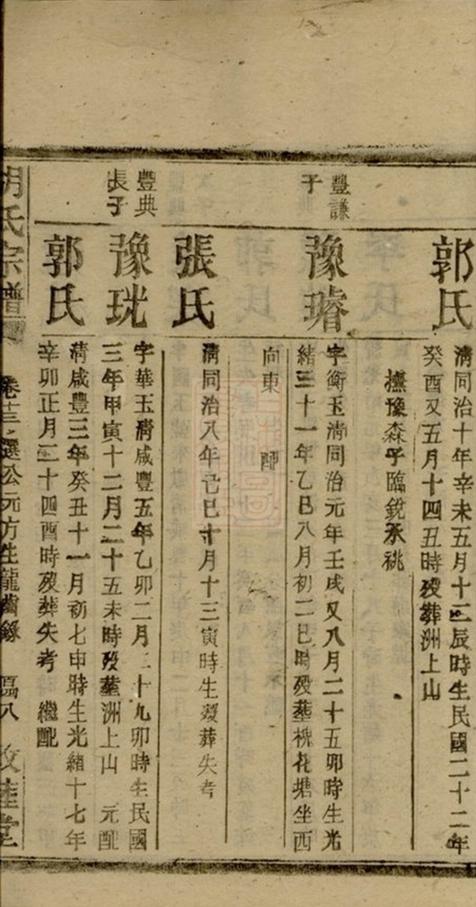 郭氏
清同治十年辛未五月十二辰時生民國二十二年
癸酉又五月十四丑時歿葬洲上山
撫豫森子臨銳承祧
豐謙
子
豫璿
字衡玉清同治元年壬戌又八月二十五卯時生光
緒三十一年乙巳八月初二巳時歿葬桃花塘坐西
向東
張氏
清同治八年己巳十月十三寅時生歿葬失考
豐典
長子
豫珖
字華玉清咸豐五年乙卯二月二十九卯時生民國
三年甲寅十二月二十五未時歿葬洲上山 元配
郭氏
清咸豐三年癸丑十一月初七申時生光緒十七年
辛卯正月二十四酉時歿葬失考 繼配
胡氏宗譜 卷十三 選公元方生龍齒錄 臨八 敦睦堂